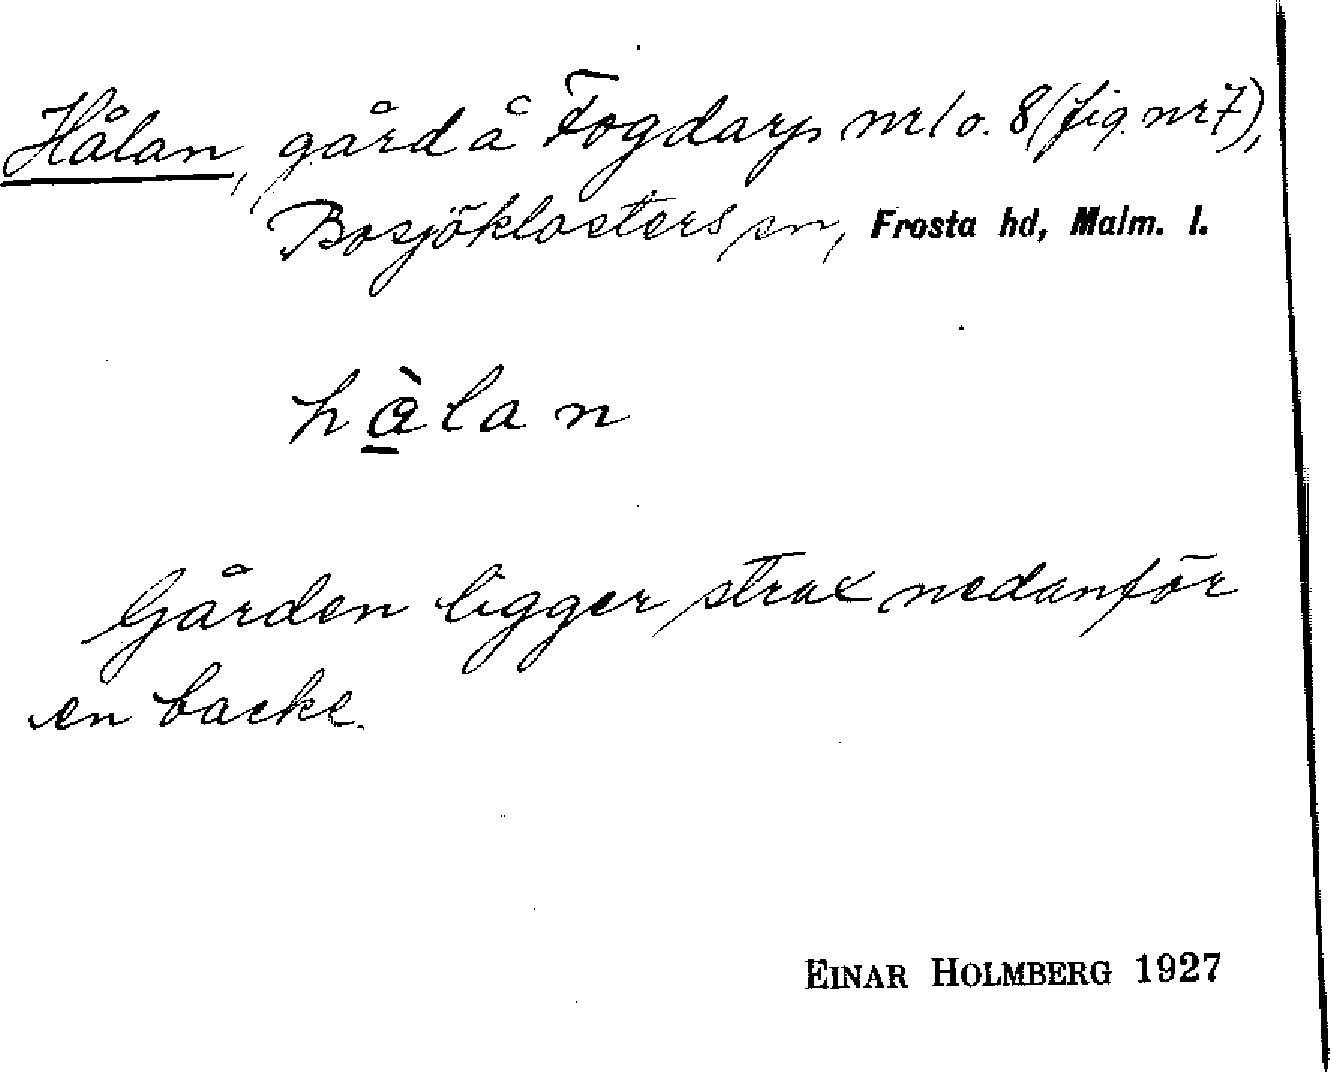 Hålan, gård å Fogdarp nr 1 o. 8 (fig. nr 7),
Bosjöklosters sn, Frosta hd, Malm. l.
hàlan
Gården ligger strax nedanför
en backe.
EINAR HOLMBERG 1927